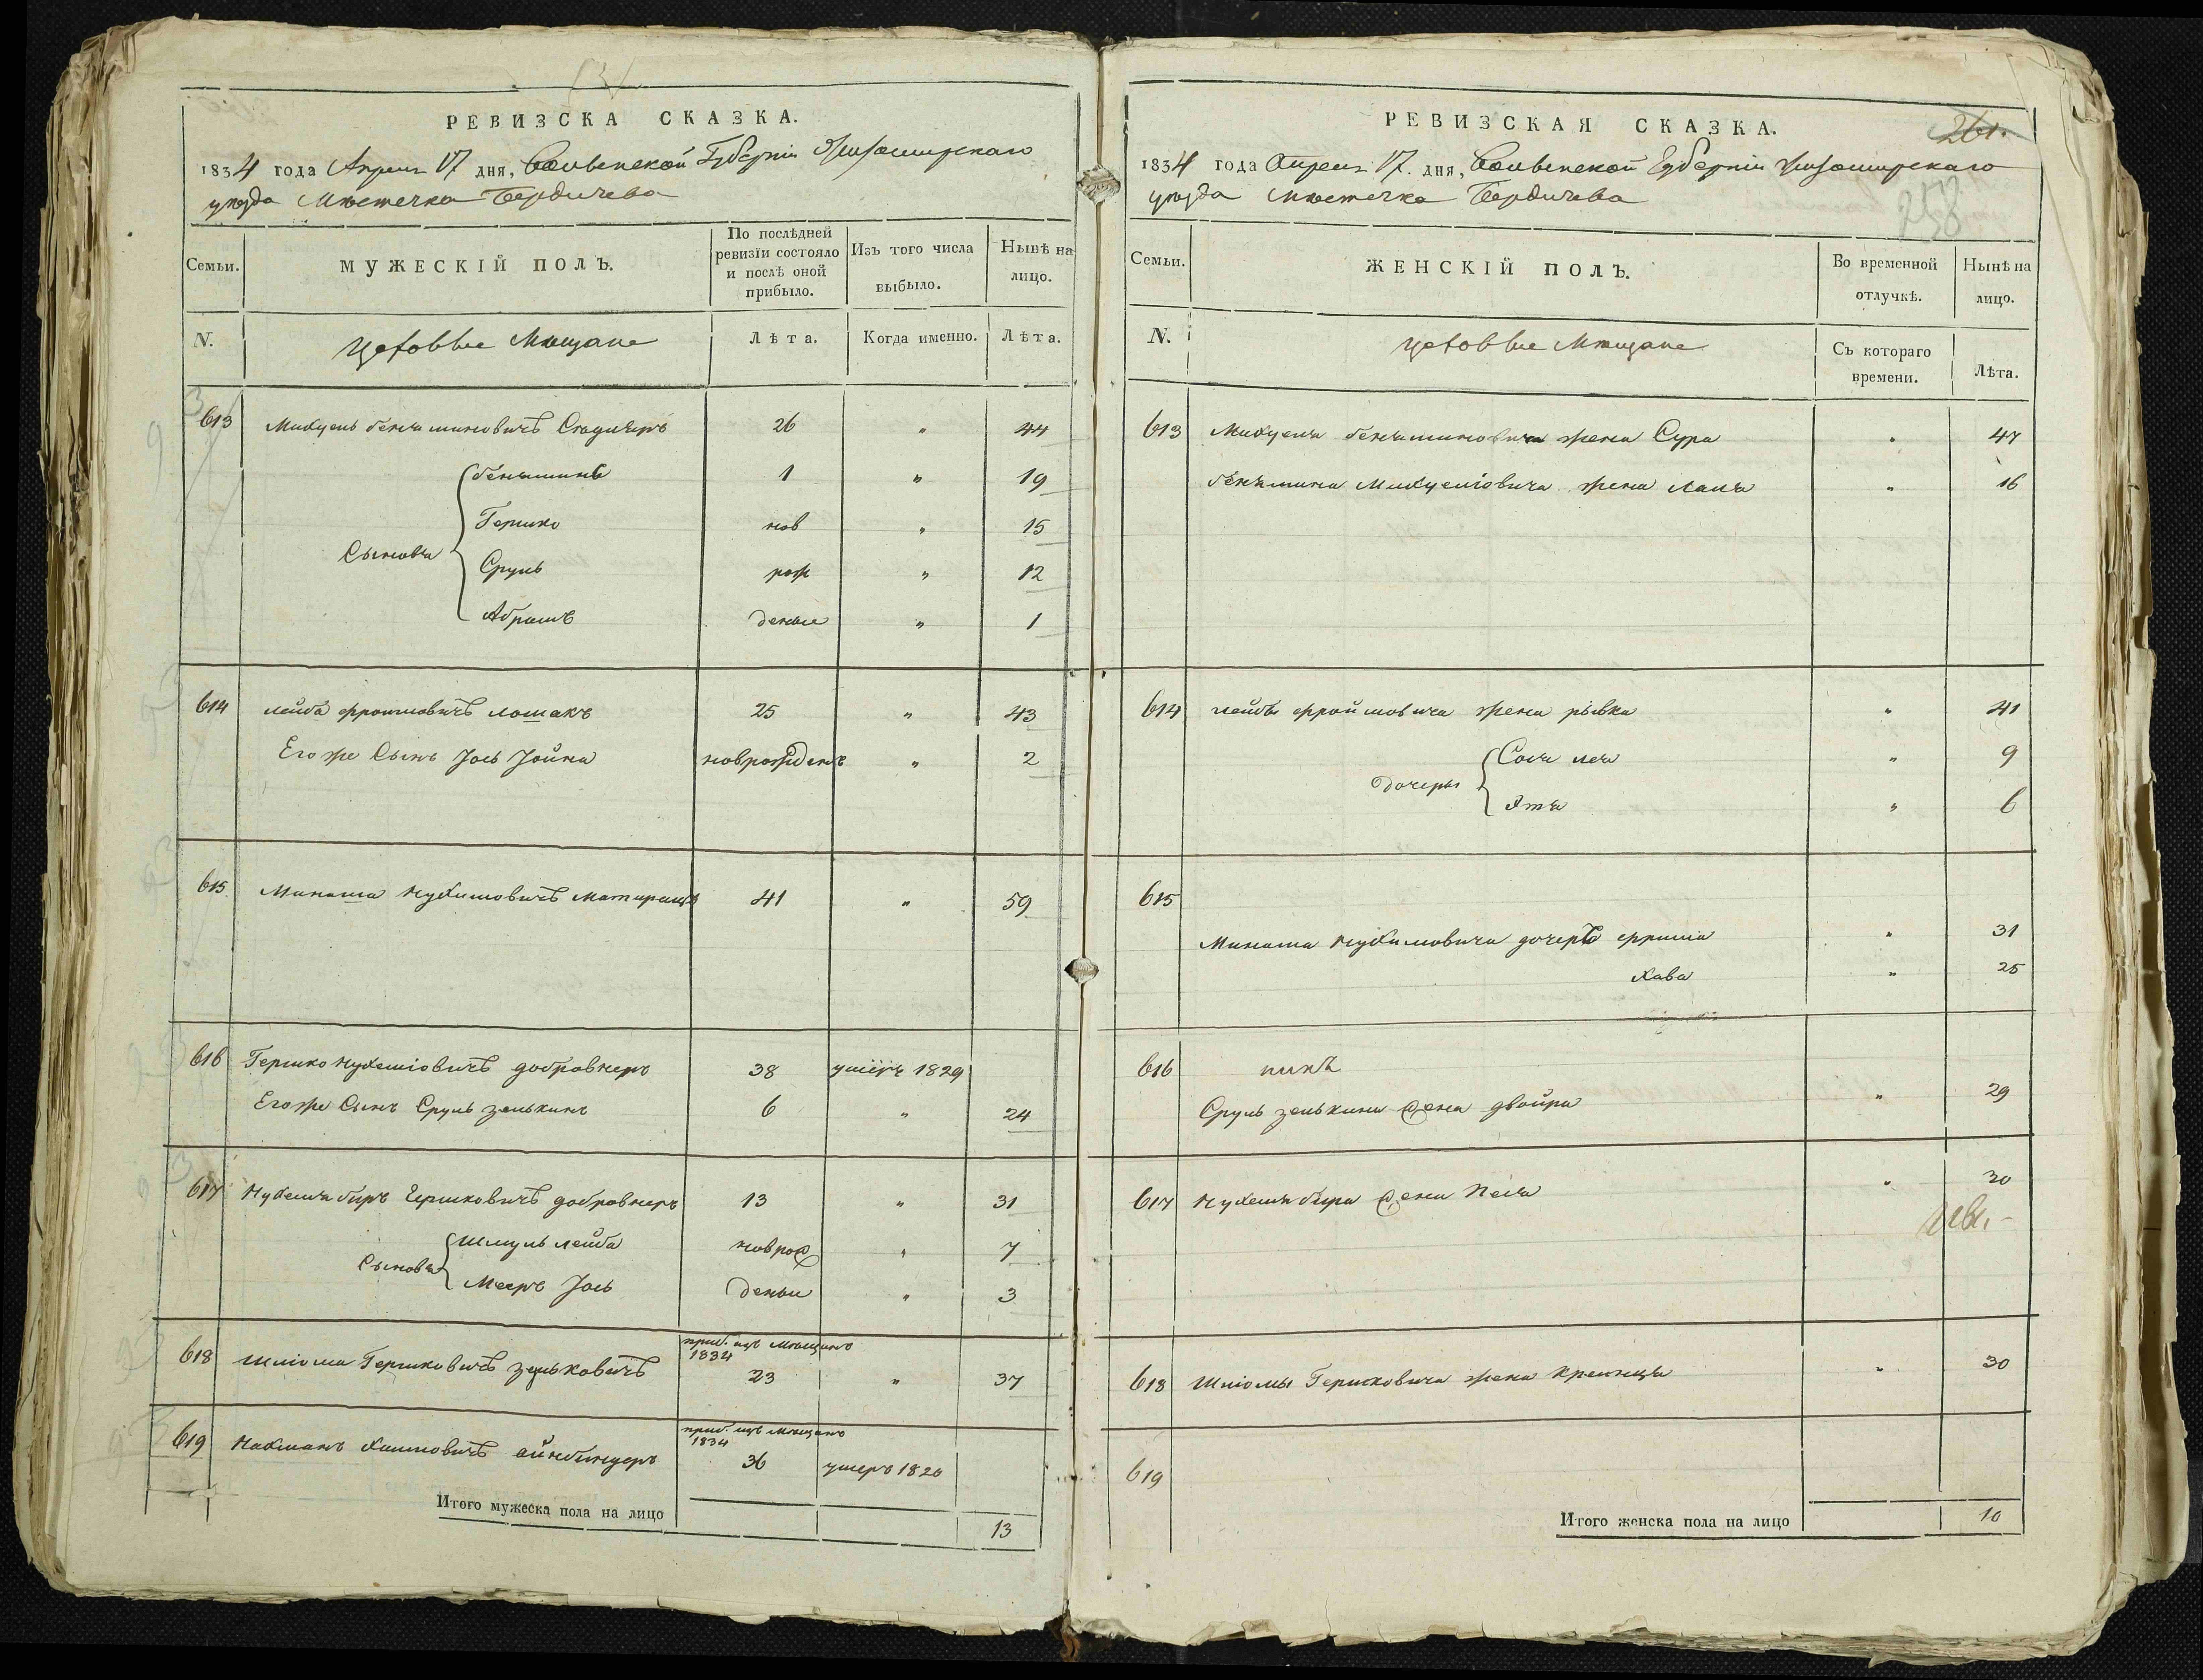 РЕВИЗСКА СКАЗКА.
1834 года Апреля 17 дня, Волынской Губерніи Житомирскаго
уезда Местечка Бердичева
Семьи.
МУЖЕСКІЙ ПОЛЪ.
По послѣдней ревизіи состояло и послѣ оной прибыло.
Изъ того числа выбыло.
Нынѣ на лицо.
N.
Цеховые Мещане
Лѣта.
Когда именно.
Лѣта.
613 Михуель беньяминовичъ 26 " 44
беньяминъ 1 " 19
Гершко нов " 15
Сыновья
Сруль рож " 12
Абрамъ деные " 1
614 лейба фроимовичъ лошакъ 25 " 43
Его же Сынъ Іось Іойна новрожденъ " 2
615 Минаша Нухимовичъ 41 " 59
616 Гершко Нухемовичъ добровнеръ 38 умеръ 1829
Его же Сынъ Сруль зелькинъ 6 " 24
617 Нухемъ беръ Гершковичъ добровнеръ 13 " 31
Шмуль лейба новрож " 7
Сыновья
Мееръ Іось деные " 3
приб. изъ Мещанъ
1834
618 Шліома Гершковичъ зельковичъ 23 " 37
приб. изъ Мещанъ
1834
619 Нахманъ Хаимовичъ айнбиндеръ 36 умеръ 1820
Итого мужеска пола на лицо 13
РЕВИЗСКАЯ СКАЗКА.
261.
1834 года Апреля 17. дня, Волынской Губерніи Житомирскаго
уезда Местечка Бердичева
258
Семьи.
ЖЕНСКІЙ ПОЛЪ.
Во временной отлучкѣ.
Нынѣ на лицо.
N.
Цеховые Мещане
Съ котораго времени.
Лѣта.
613 Михуеля беньяминовича жена Сура " 47
беньямина Михуеліовича жена " 16
614 лейбы фроймовича жена рывка " 41
Сося лея " 9
Дочеры
Этя " 6
615
Минаша Нухимовича дочеръ " 31
Хава " 25
616
Сруль зелькина жена двойра " 29
617 Нухемъ бера жена Песя " 30
618 Шліомы Гершковича жена Крейнця " 30
619
Итого женска пола на лицо 10